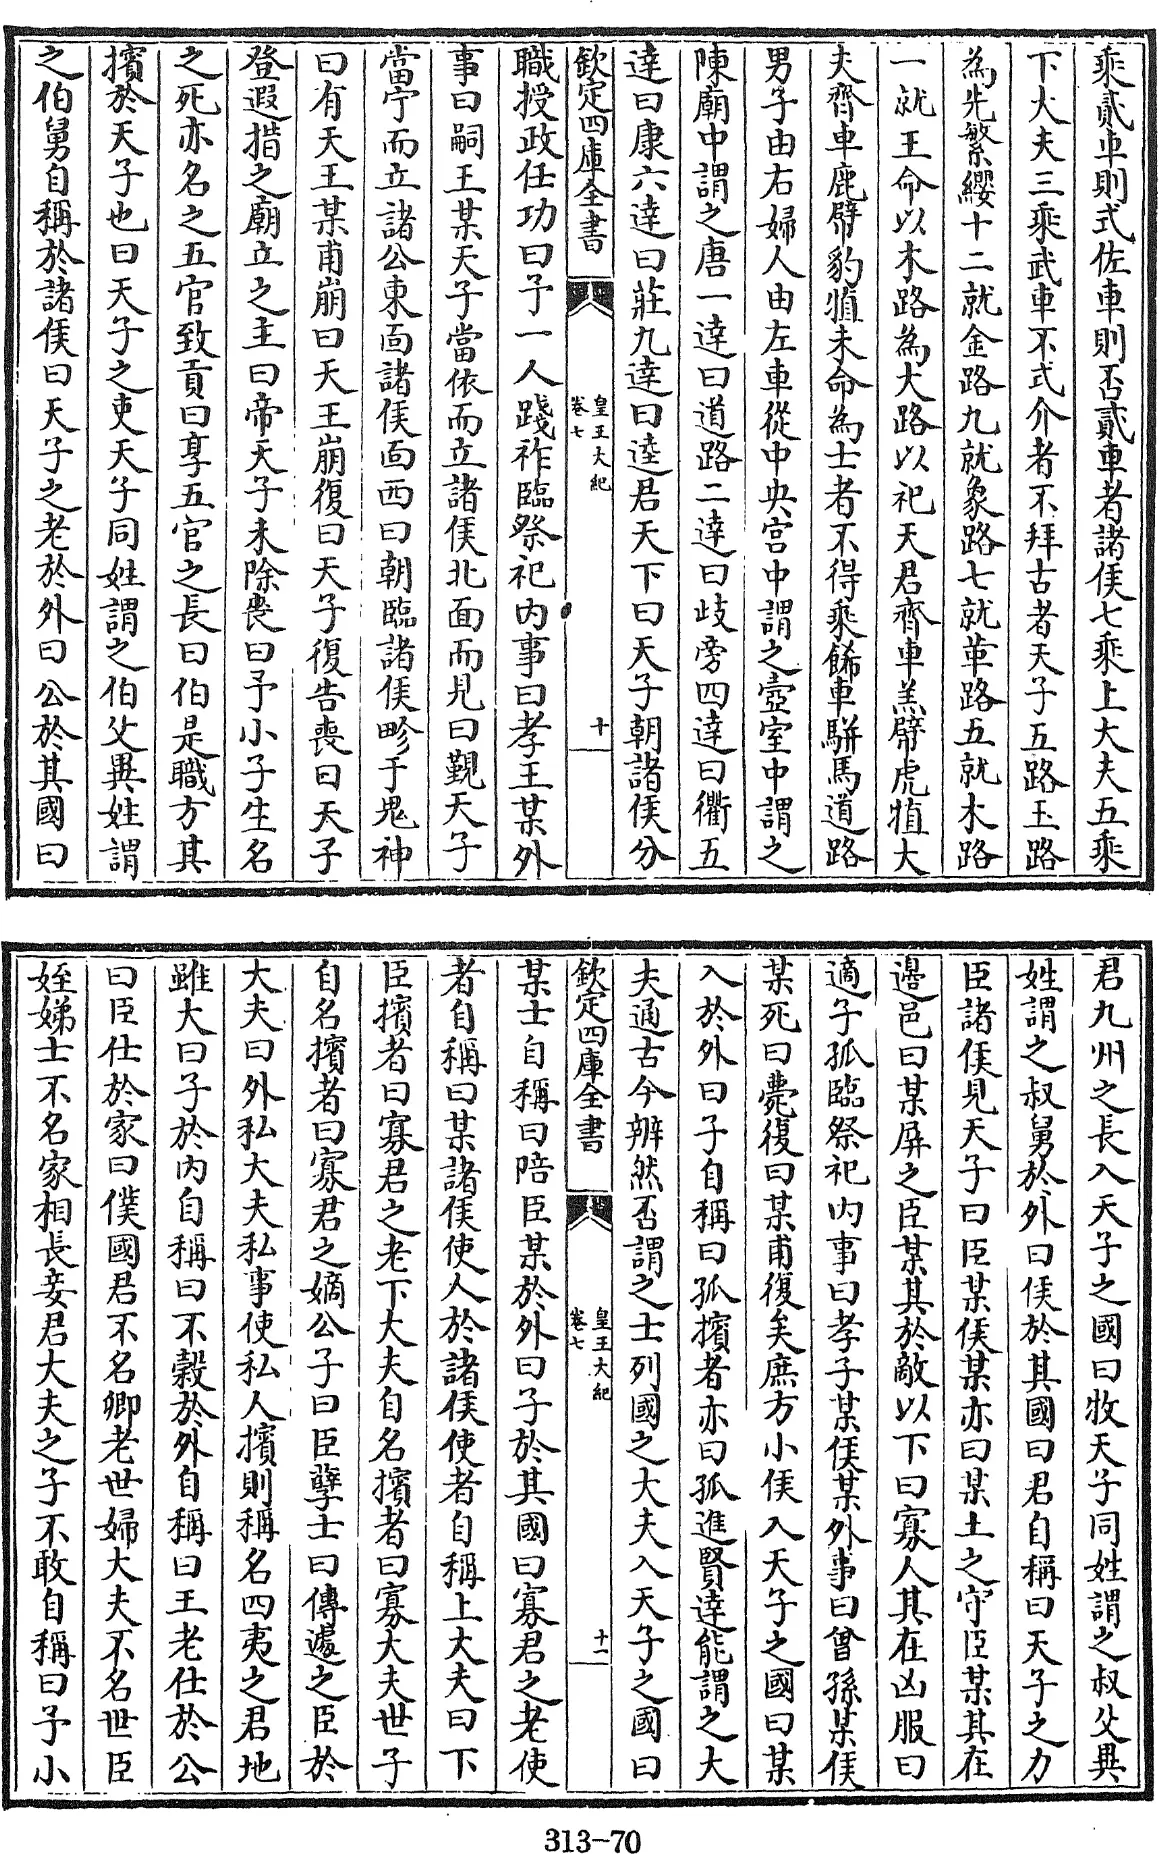 乘貳車則式佐車則否貳車者諸侯七乘上大夫五乘
下大夫三乘武車不式介者不拜古者天子五路玉路
為先繁纓十二就金路九就象路七就革路五就木路
一就王命以木路為大路以祀天君齊車羔幦虎犆大
夫齊車鹿幦豹犆未命為士者不得乘飾車駢馬道路
男子由右婦人由左車從中央宫中謂之壼室中謂之
陳廟中謂之唐一達曰道路二達曰歧旁四達曰衢五
達曰康六達曰莊九達曰逵君天下曰天子朝諸侯分
欽定四庫全書
皇王大紀
卷七
十
職授政任功曰予一人踐祚臨祭祀内事曰孝王某外
事曰嗣王某天子當依而立諸侯北面而見曰覲天子
當宁而立諸公東面諸侯面西曰朝臨諸侯畛于鬼神
曰有天王某甫崩曰天王崩復曰天子復告喪曰天子
登遐措之廟立之主曰帝天子未除喪曰予小子生名
之死亦名之五官致貢曰享五官之長曰伯是職方其
擯於天子也曰天子之吏天子同姓謂之伯父異姓謂
之伯舅自稱於諸侯曰天子之老於外曰公於其國曰
君九州之長入天子之國曰牧天子同姓謂之叔父異
姓謂之叔舅於外曰侯於其國曰君自稱曰天子之力
臣諸侯見天子曰臣某侯某亦曰某土之守臣某其在
邊邑曰某屏之臣某其於敵以下曰寡人其在凶服曰
適子孤臨祭祀内事曰孝子某侯某外事曰曾孫某侯
某死曰薨復曰某甫復矣庶方小侯入天子之國曰某
入於外曰子自稱曰孤擯者亦曰孤進賢達能謂之大
夫通古今辨然否謂之士列國之大夫入天子之國曰
欽定四庫全書
皇王大紀
卷七
十一
某士自稱曰陪臣某於外曰子於其國曰寡君之老使
者自稱曰某諸侯使人於諸侯使者自稱上大夫曰下
臣擯者曰寡君之老下大夫自名擯者曰寡大夫世子
自名擯者曰寡君之嫡公子曰臣孽士曰傳遽之臣於
大夫曰外私大夫私事使私人擯則稱名四夷之君地
雖大曰子於内自稱曰不穀於外自稱曰王老仕於公
曰臣仕於家曰僕國君不名卿老世婦大夫不名世臣
姪娣士不名家相長妾君大夫之子不敢自稱曰予小
313-70